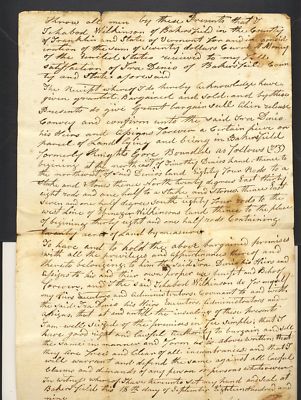 Know all men by these Presents that I
Ichabod Wilkinson of Bakersfield in the County
of Franklin and State of Vermont for and
eration of the sum of Seventy dollars Current Money
of the United States received to my full
Satisfaction of Ira Divis of Bakersfield Coun
ty and State aforesaid
The Receipt whereof I do hereby acknowledge have
given granted Bargained and Sold and by these
Presents do give grant bargain sell alien release
Convey and confirm unto the said Ira Divis
his Heirs and Assigns forever a Certain piece or
parcel of Land lying and being in Bakersfield
formerly Knights Gore Bounded as follows
begining at the of Timothy Divis land thence to
the northwest of said Divis land Eighty four rods to a
Stake and Stones thence north twenty degrees East
eight rods and one half to a Stake and Stones thence
Seven and one half degree south eighty four rods to the
west Line of Ebenezer Wilkinsons land thence to the place
of begining thirty eight and one half rods Containing
twenty acres of land by measure
To have and to hold the above bargained premises
with all the privileges and appurtenances thereof and
thereto belonging to him the said Ira Divis his Heirs and
assigns to his and their own proper use benefit and Behoof
forever, and I the said Ichabod Wilkinson do for myself
my Heirs Executors and Administrators Covenant to and with
the said Ira Divis his Heirs Executors Administrators and
assigns that at and untill the ensealing of these presents
I am well seized of the premises in fee simple, that I
have good right and lawful authority to bargain and sell
the same in manner and form as above written that
they are free and Clear of all incumbrances and that I
will warrant and defend the same against all lawful
claims and demands of any person or persons whatsoever
In witness whereof I have hereunto set my hand and seal at
Bakersfield this 18th day of September Eighteen hundred and
nine